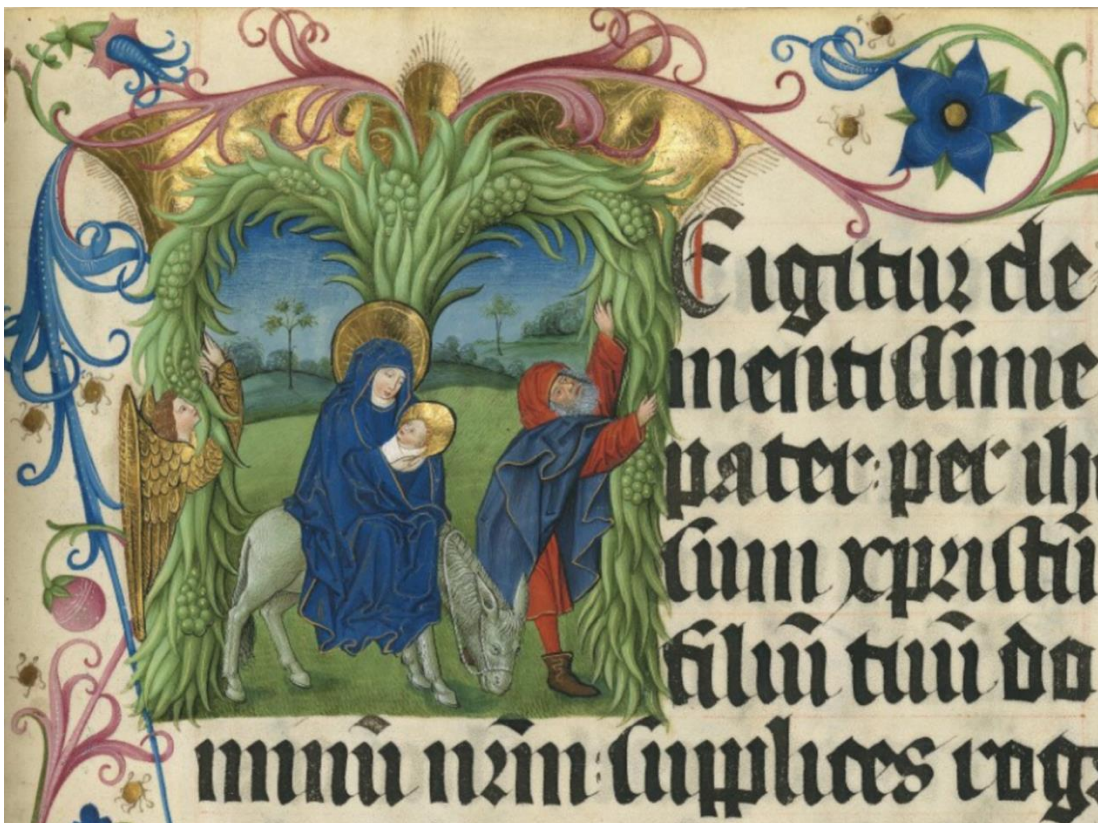 TE igitur cle
mentissime
pater: per ih
sum xpristū
filiū tuū do
minū nr̄m: supplices rog